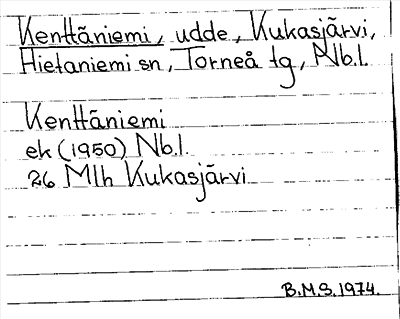 Kenttäniemi, udde, Kukasjärvi,
Hietaniemi sn, Torneå tg, Nb.l.
Kenttäniemi
ek (1950) Nb.l.
26 Mlh Kukasjärvi
B.M.S. 1974.